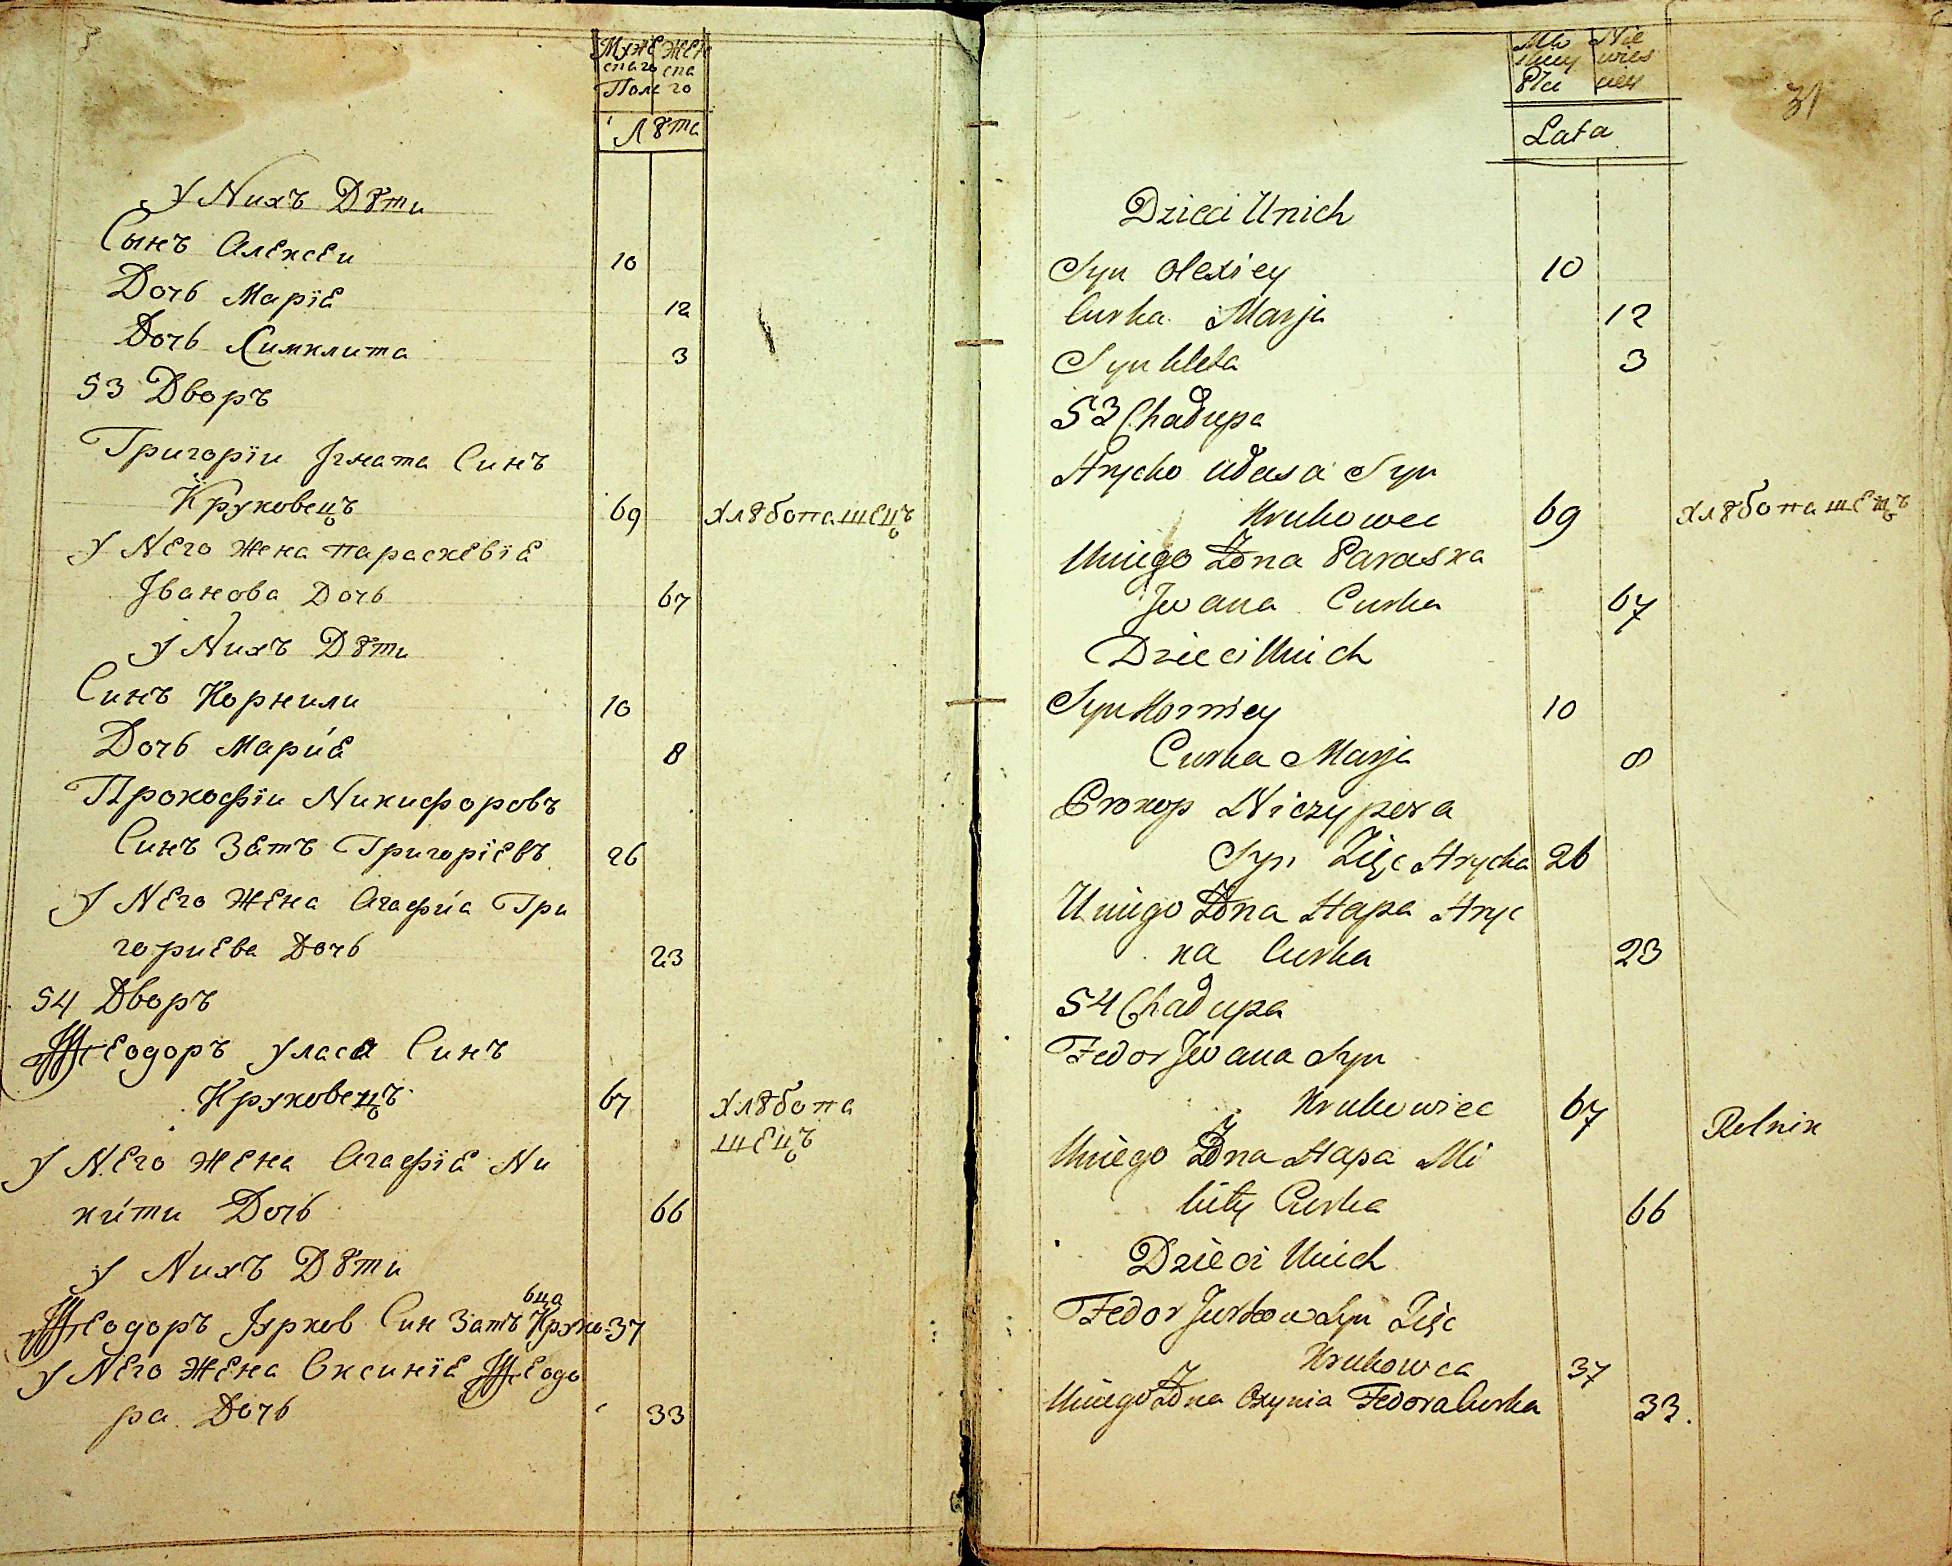 Муже Жен
скаго ска
Поле го
Лѣта
У Нихъ Дѣти
Сынъ Алексеи 10
Дочь Маріе 12
Дочь Симклита 3
53 Дворъ
Григоріи Игната Синъ
Круковецъ 69 хлѣбопашецъ
У Него жена параскевіе
Иванова Дочь 67
У Нихъ Дѣти
Синъ Корнили 10
Дочь Маріе 8
Прокофіи Никифоровъ
Синъ Зать Григоріевъ 26
У Него жена Агафиа Гри
гориева Дочь 23
54 Дворъ
Ѳеодоръ Уласа Синъ
Круковецъ 67 хлѣбопа
шецъ
У Него жена Агафіе Ни
кити Дочь 66
У Нихъ Дѣти
Ѳеодоръ Юрков Син Зать Круко 37
вца
У Него жена Оксиніе Ѳеодо
ра Дочь 33
31
Lata
Dzieci Unich
Syn Olexiey 10
Curka Marja 12
Synkleta 3
53 Chadupa
Hrycko Syn
Krukowec 69 хлѣбопашецъ
Uniego Żona Paraska
Jwana Curka 67
Dzieci Unich
Syn Korniey 10
Curka Marja 8
Prokop Niczypera
Syn Zięc Hrycka 26
Uniego Żona Hapa Hryc
ka Curka 23
54 Chadupa
Fedor Jwana Syn
Krukowiec 67 Rolnik
Uniego Żona Hapa Mi
kity Curka 66
Dzieci Unich
Fedor Jurkow Syn Zięc
Krukowca 37
Uniego Żona Oxynia Fedora Curka 33.